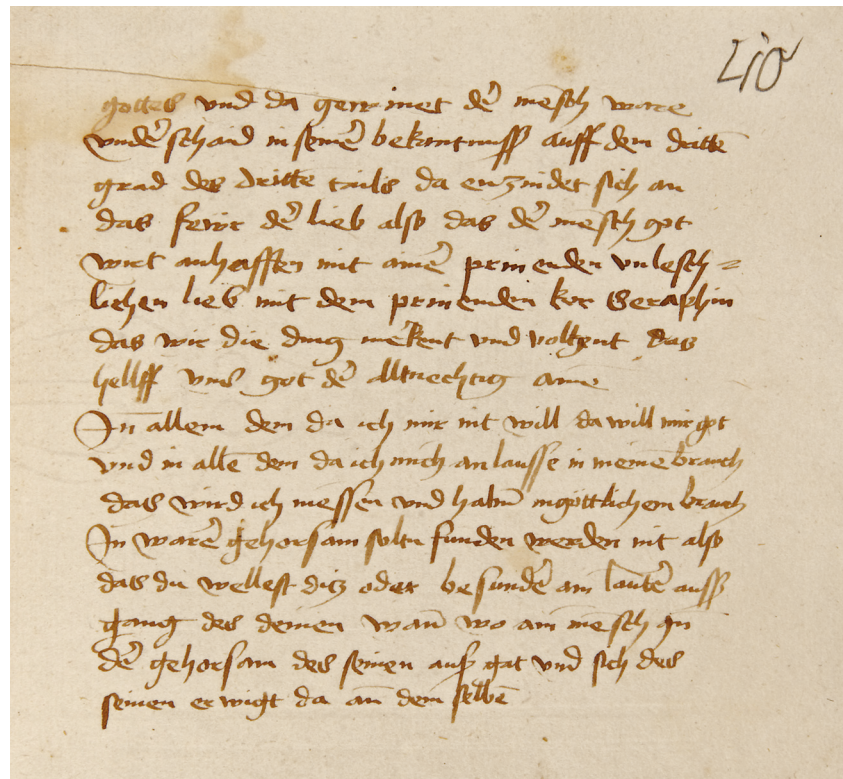 40
gottes vnd da gerainet dē mēsch ware
vndē schaid in seinē bekantnuſſ auff dem drittē
grad des dritte tails da enzindet sich an
das fewr dē lieb also das dē mēsch got
wirt anhafften mit ainē prinenden vnlesch=
lichen lieb mit dem prinenden kor Seraphin
das wir die ding mēkent vnd volbrnt das
hellff vns got dē allmechtig amē
In allem dem da ich mir nit will da will mir got
vnd in allē dem da ich mich an lausse in meinē brauch
das wird ich niessen vnd habn̄ in göttlichem brauch
In warē gehorsam soltu funden werden nit also
das du wellest ditz oder besundē ain lautē auss
gang des deinen wan̄ wo ain mēsch In
dē gehorsam des seinen auß gat vnd sich des
seinen er wigt da an dem selbē